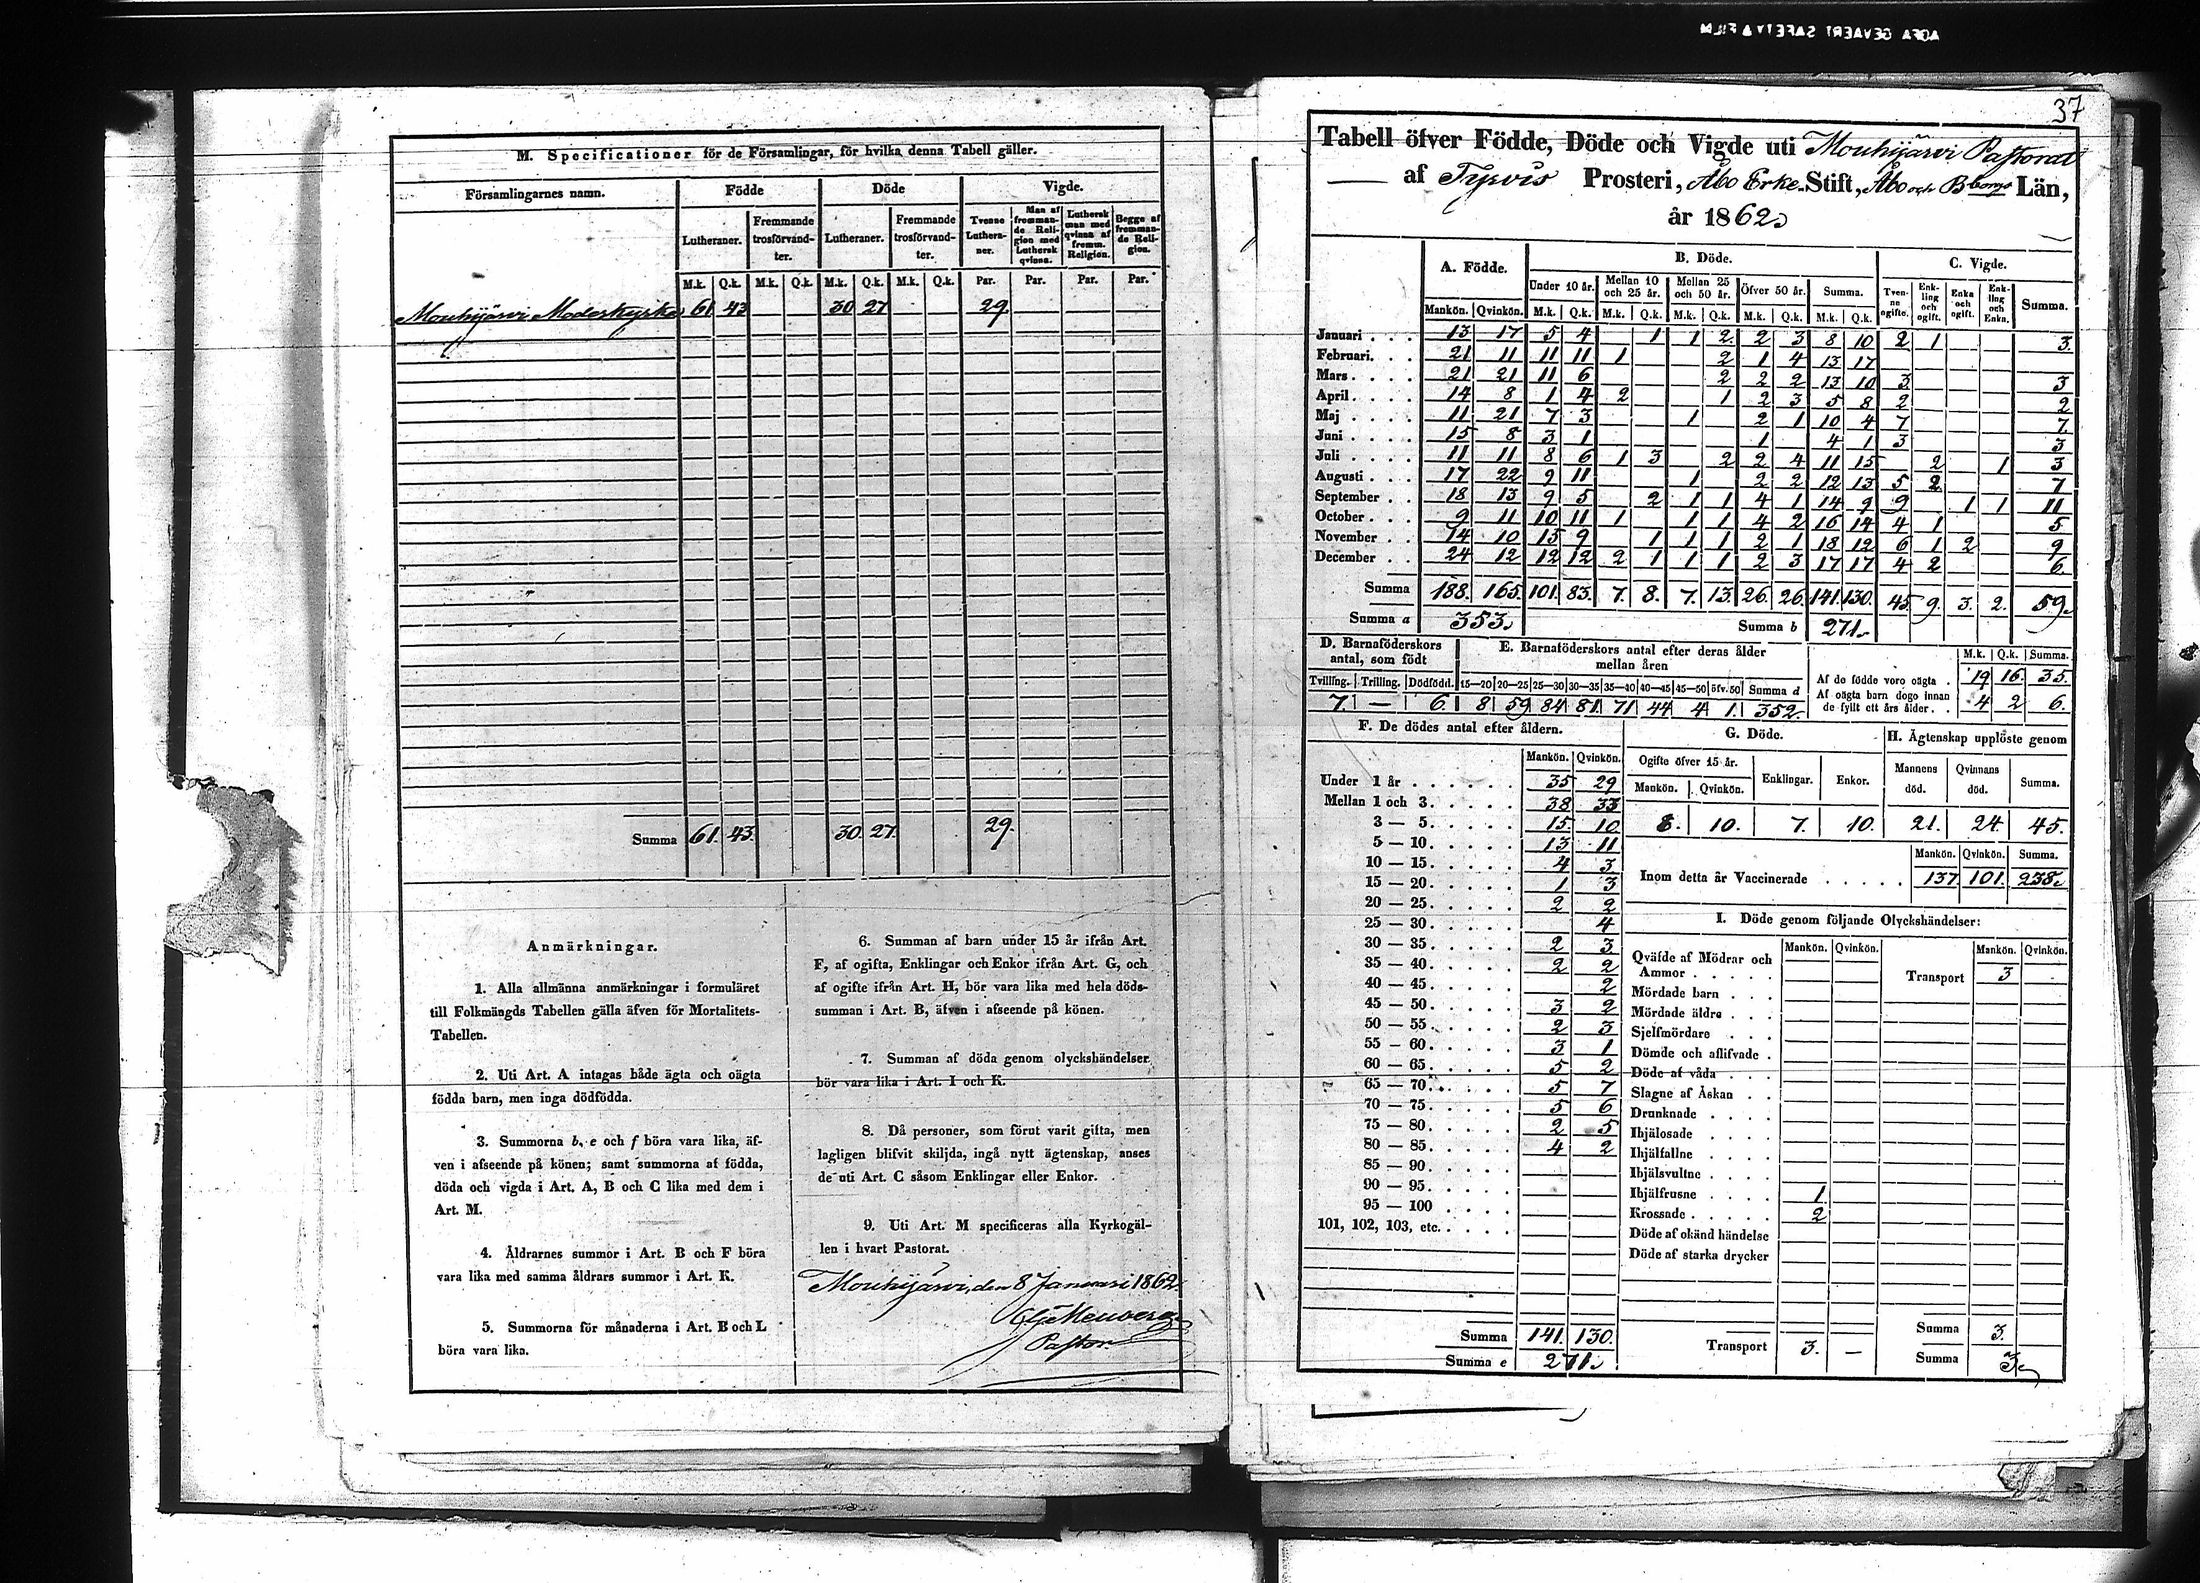 M. Specificationer för de Församlingar, för hvilka denna Tabell gäller.
Församlingarnes namn. Födde Döde Vigde.
Lutheraner. Fremmande trosförvandter. Lutheraner. Fremmande trosförvandter. Tvenne Lutheraner. Man af fremmande Religion med Luthersk qvinna. Luthersk man med qvinna af fremm. Religion. Begge af fremmande Religion.
M.k. Q.k. M.k. Q.k. M.k. Q.k. M.k. Q.k. Par. Par. Par. Par.
Mouhijärvi Moderkyrka 61 43 30 27 29.
Summa 61. 43. 30. 27. 29.
Anmärkningar.
1. Alla allmänna anmärkningar i formuläret
till Folkmängds Tabellen gälla äfven för Mortalitets-
Tabellen.
2. Uti Art. A intagas både ägta och oägta
födda barn, men inga dödfödda.
3. Summorna b, e och f böra vara lika, äf-
ven i afseende på könen; samt summorna af födda,
döda och vigda i Art. A, B och C lika med dem i
Art. M.
4. Åldrarnes summor i Art. B och F böra
vara lika med samma åldrars summor i Art. K.
5. Summorna för månaderna i Art. B och L
böra vara lika.
6. Summan af barn under 15 år ifrån Art.
F, af ogifta, Enklingar och Enkor ifrån Art. G, och
af ogifte ifrån Art. H, bör vara lika med hela döds-
summan i Art. B, äfven i afseende på könen.
7. Summan af döda genom olyckshändelser
bör vara lika i Art. I och K.
8. Då personer, som förut varit gifta, men
lagligen blifvit skiljda, ingå nytt ägtenskap, anses
de uti Art. C såsom Enklingar eller Enkor.
9. Uti Art. M specificeras alla Kyrkogäl-
len i hvart Pastorat.
Mouhijärvi, den 8 Januari 1862.
Pastor.
37
Tabell öfver Födde, Döde och Vigde uti Mouhijärvi Pastorat
af Tyrvis Prosteri, Åbo Erke-Stift, Åbo och Bborgs Län,
år 1862.
A. Födde. B. Döde. C. Vigde.
Under 10 år. Mellan 10 och 25 år. Mellan 25 och 50 år. Öfver 50 år. Summa. Tvenne ogifte. Enkling och ogift. Enka och ogift. Enkling och Enka. Summa.
Mankön. Qvinkön. M.k. Q.k. M.k. Q.k. M.k. Q.k. M.k. Q.k. M.k. Q.k.
Januari 13 17 5 4 1 1 2 2 3 8 10 2 1 3.
Februari. 21 11 11 11 1 2 1 4 13 17
Mars 21 21 11 6 2 2 2 13 10 3 3
April 14 8 1 4 2 1 2 3 5 8 2 2
Maj 11 21 7 3 1 2 1 10 4 7 7.
Juni 15 8 3 1 1 4 1 3 3
Juli 11 11 8 6 1 3 2 2 4 11 15 2 1 3
Augusti 17 22 9 11 1 2 2 12 13 5 2 7
September 18 13 9 5 2 1 1 4 1 14 9 9 1 1 11
October 9 11 10 11 1 1 1 4 2 16 14 4 1 5
November 14 10 15 9 1 1 1 2 1 18 12 6 1 2 9
December 24 12 12 12 2 1 1 1 2 3 17 17 4 2 6.
Summa 188. 165. 101. 83. 7. 8. 7. 13. 26. 26. 141. 130. 45. 9. 3. 2. 59.
Summa a 353. Summa b 271.
D. Barnaföderskors antal, som födt
Tvilling. Trilling. Dödfödd.
7. — 6.
E. Barnaföderskors antal efter deras ålder mellan åren
15—20 20—25 25—30 30—35 35—40 40—45 45—50 öfv. 50 Summa d
8 59 84 81 71 44 4 1. 352.
M.k. Q.k. Summa.
Af de födde voro oägta 19 16. 35.
Af oägta barn dogo innan de fyllt ett års ålder 4 2 6.
F. De dödes antal efter åldern.
Mankön. Qvinkön.
Under 1 år 35 29
Mellan 1 och 3. 38 33
3 — 5. 15. 10
5 — 10. 13 11
10 — 15. 4 3
15 — 20. 1 3
20 — 25. 2 2
25 — 30. 4
30 — 35. 2 3
35 — 40. 2 2
40 — 45. 2
45 — 50. 3 2
50 — 55. 2 3
55 — 60. 3 1
60 — 65. 5 2
65 — 70. 5 7
70 — 75. 5 6
75 — 80. 2 5
80 — 85. 4 2
85 — 90.
90 — 95.
95 — 100
101, 102, 103, etc.
Summa 141. 130.
Summa e 271.
G. Döde.
Ogifte öfver 15 år. Enklingar. Enkor.
Mankön. Qvinkön.
8. 10. 7. 10.
H. Ägtenskap upplöste genom
Mannens död. Qvinnans död. Summa.
21. 24. 45.
Mankön. Qvinkön. Summa.
Inom detta år Vaccinerade 137 101. 238.
I. Döde genom följande Olyckshändelser:
Mankön. Qvinkön. Mankön. Qvinkön.
Qväfde af Mödrar och Ammor
Mördade barn
Mördade äldre
Sjelfmördare
Dömde och aflifvade
Döde af våda
Slagne af Åskan
Drunknade
Ihjälosade
Ihjälfallne
Ihjälsvultne
Ihjälfrusne 1
Krossade 2
Döde af okänd händelse
Döde af starka drycker
Transport 3. —
Transport 3 -
Summa 3.
Summa 3